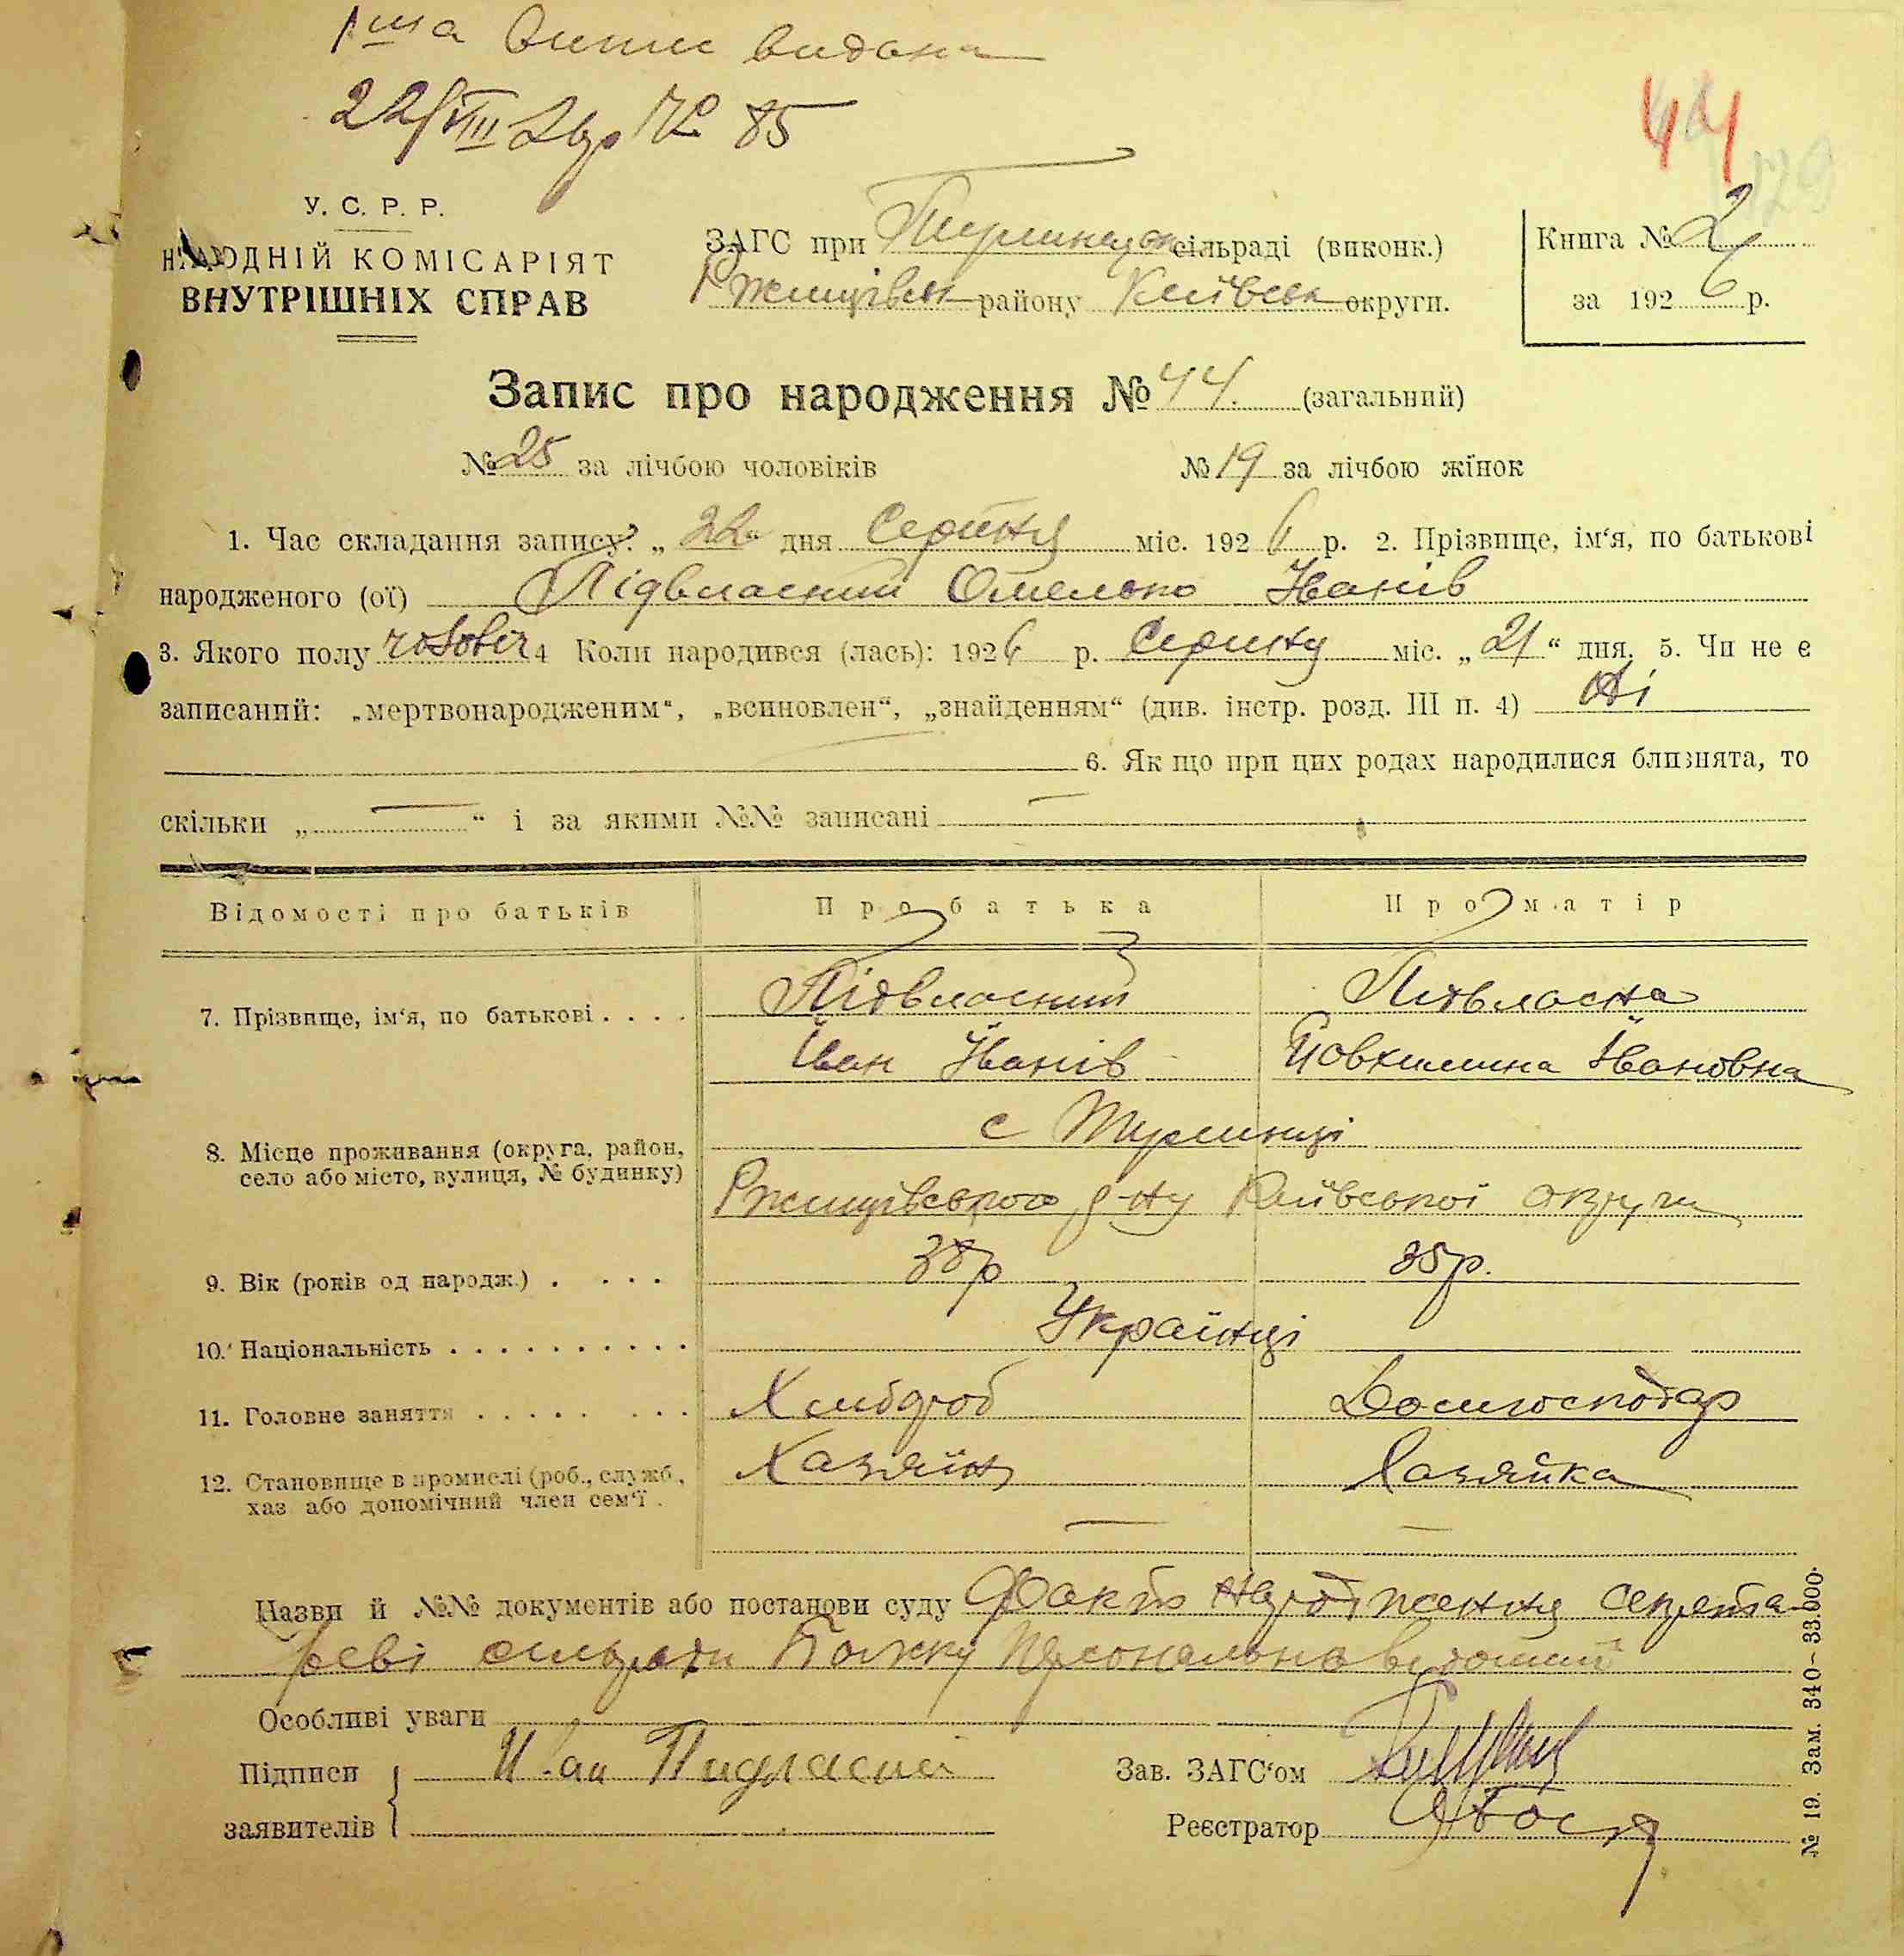 1ша випис видана
22/VIII 26р № 85
44
У. С. Р. Р.
НАРОДНІЙ КОМІСАРІЯТ
ВНУТРІШНІХ СПРАВ
ЗАГС при сільраді (виконк.)
району Київськ округи.
Книга № 2
за 1926 р.
Запис про народження № 44. (загальний)
№ 25 за лічбою чоловіків № 19 за лічбою жінок
1. Час складання запису: „22“ дня Серпня міс. 1926 р. 2. Прізвище, ім‘я, по батькові
народженого (ої) Підвласний Омелько Іванів
3. Якого полу 4 Коли народився (лась): 1926 р. Серпня міс. „21“ дня. 5. Чи не є
записаний: „мертвонародженим“, „всиновлен“, „знайденням“ (див. інстр. розд. III п. 4) Ні
6. Як що при цих родах народилися близнята, то
скільки „—“ і за якими №№ записані —
Відомості про батьків Про батька Про матір
7. Прізвище, ім‘я, по батькові . . . . Підвласний Підвласна
Іван Іванів Йовхимина Івановна
с Туминці
8. Місце проживання (округа, район,
село або місто, вулиця, № будинку)
Ржищівського р-ну Київської округи
9. Вік (років од народж.) . . . . 38р 35р.
10. Національність . . . . . . . . . . Українці
11. Головне заняття . . . . . . . . . Хлібороб Домгосподар
12. Становище в промислі (роб., служб., Хазяїн Хазяйка
хаз або допомічний член сем‘ї .
— —
Назви й №№ документів або постанови суду Факт народження секрета-
реві сильради персонально відомий
Особливі уваги
Підписи Иван Пидвласний Зав. ЗАГС‘ом
заявителів Реєстратор
№ 19. Зам. 340—33.000.